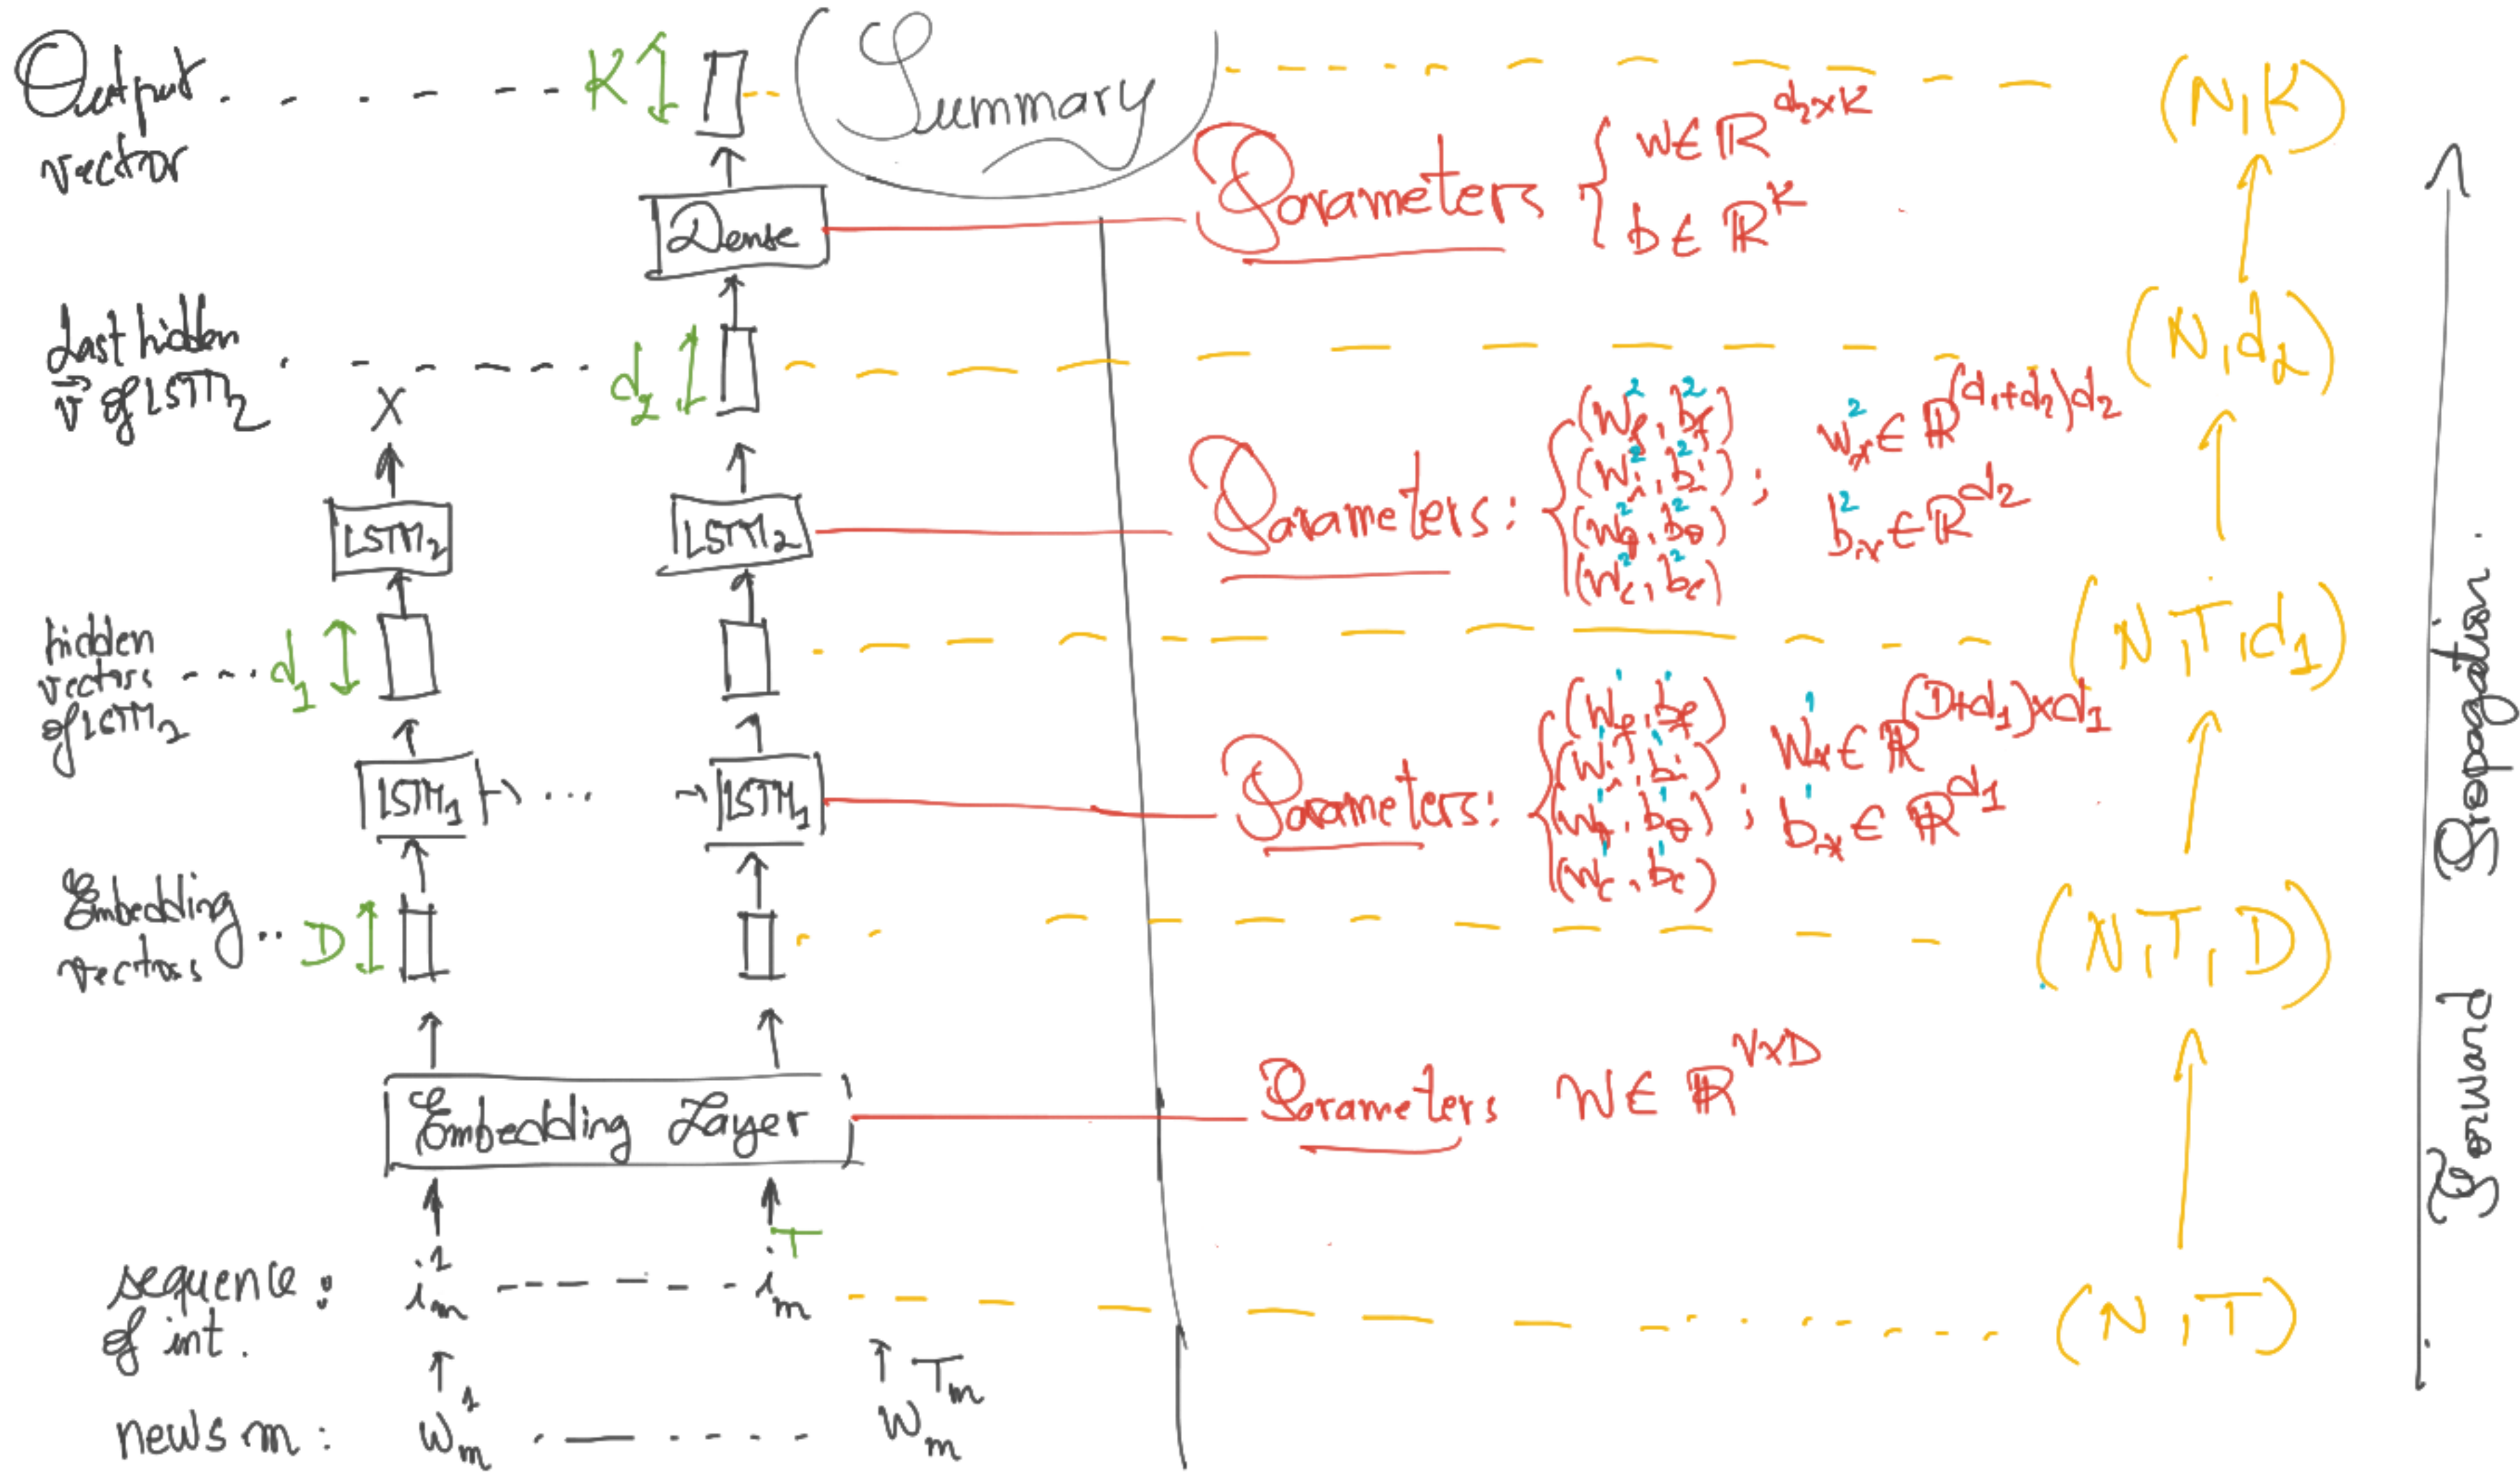 Output vector
K
Summary
(N, K)
Dense
Parameters { W ∈ ℝ^{d₂×K}
b ∈ ℝ^K
Last hidden
v⃗ of LSTM₂
d₂
(N, d₂)
X
LSTM₂
LSTM₂
Parameters : { (W_f², b_f²)
(W_i², b_i²) ; W_x² ∈ ℝ^{(d₁+d₂)d₂}
(W_o², b_o²) b_x² ∈ ℝ^{d₂}
(W_c², b_c²)
hidden
vectors
of LSTM₂
d₁
(N, T, d₁)
LSTM₁ → ... → LSTM₁
Parameters : { (W_f¹, b_f¹)
(W_i¹, b_i¹) ; W_x¹ ∈ ℝ^{(D+d₁)×d₁}
(W_o¹, b_o¹) b_x¹ ∈ ℝ^{d₁}
(W_c¹, b_c¹)
Embedding
vectors
D
(N, T, D)
Embedding Layer
Parameters W ∈ ℝ^{V×D}
sequence :
of int.
i_m^1 ------ i_m^T
(N, T)
news m : W_m^1 ------ W_m^{T_m}
Forward Propagation.